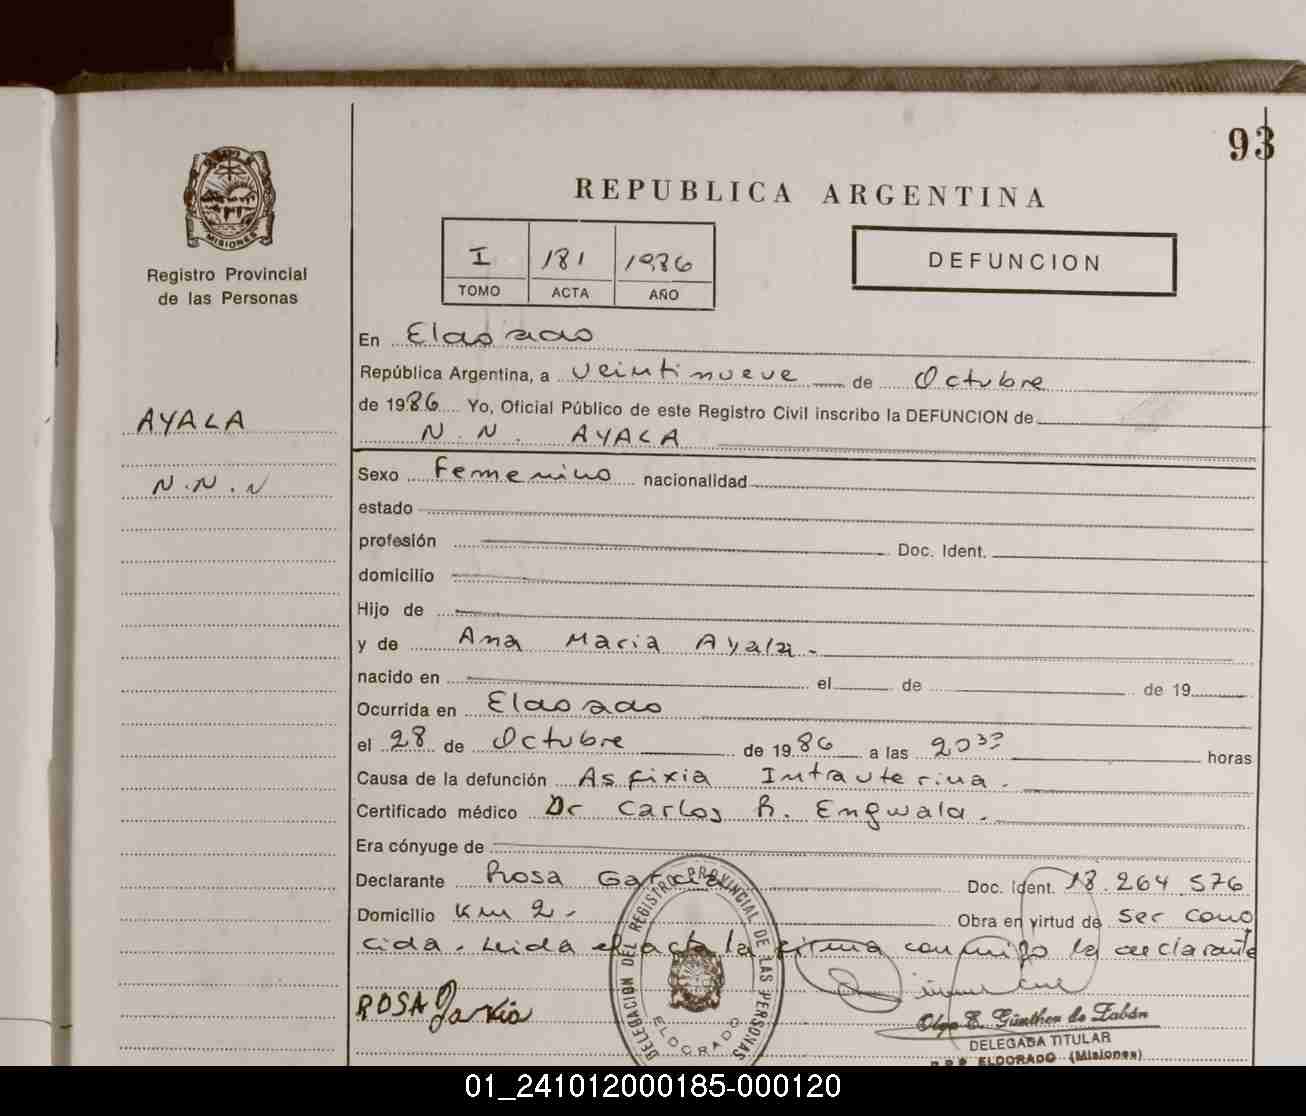 93
MISIONES
Registro Provincial
de las Personas
REPUBLICA ARGENTINA
I 181 1986
TOMO ACTA AÑO
DEFUNCION
En Eldorado
República Argentina, a veintinueve de Octubre
de 1986 Yo, Oficial Público de este Registro Civil inscribo la DEFUNCION de
AYALA
N. N. AYALA
N.N.N
Sexo Femenino nacionalidad
estado
profesión Doc. Ident.
domicilio
Hijo de
y de Ana Maria Ayala.
nacido en el de de 19
Ocurrida en Eldorado
el 28 de Octubre de 1986 a las 20 horas
Causa de la defunción Asfixia Intrauterina.
Certificado médico Dr Carlos R. Engwala.
Era cónyuge de
Declarante Rosa Garcia Doc. Ident. 18.264 576
Domicilio Km 2. Obra en virtud de ser cono
cida. Leida el acta la firma conmigo la declarante
ROSA Garcia
DELEGACION DEL REGISTRO PROVINCIAL DE LAS PERSONAS
ELDORADO
Olga E. Günther de Zabán
DELEGADA TITULAR
R.P.P. ELDORADO (Misiones)
01_241012000185-000120